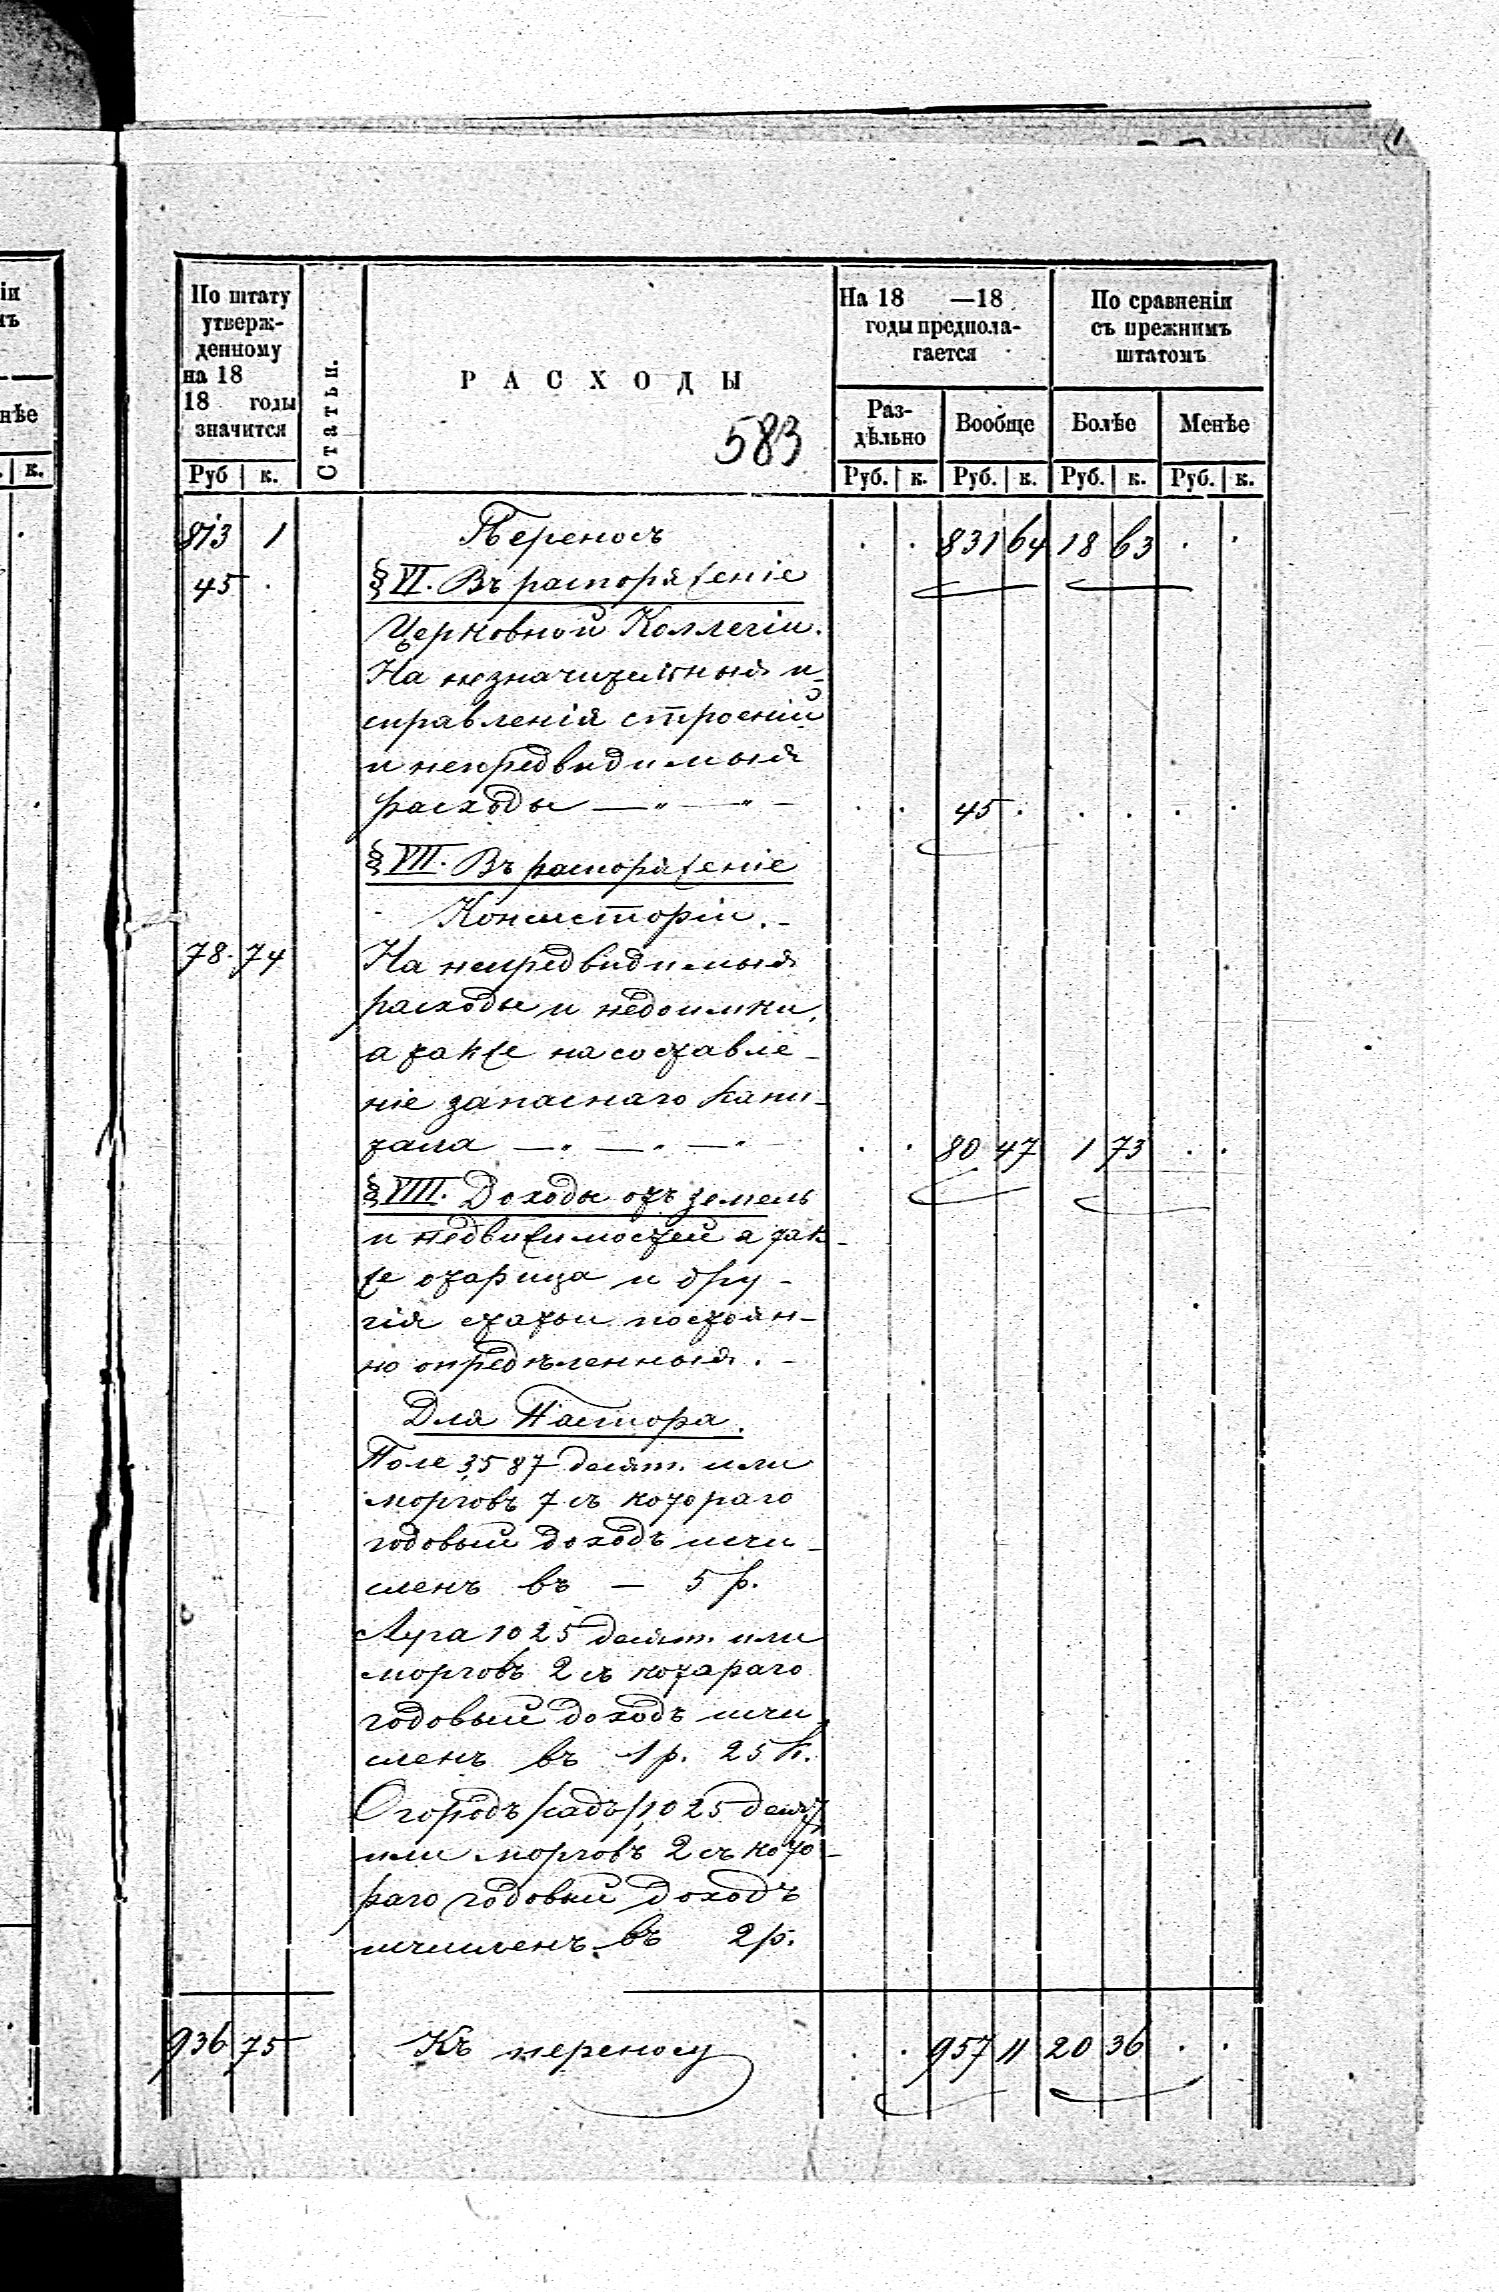 іи
мъ
нѣе
к.
По штату
утверж-
денному
на 18
18 годы
значится
Руб к.
Статьи.
РАСХОДЫ
583
На 18 —18
годы предпола-
гается
Раз-
дѣльно
Вообще
Руб. к. Руб. к.
По сравненіи
съ прежнимъ
штатомъ
Болѣе Менѣе
Руб. к. Руб. к.
813 1 Переносъ . . 831 64 18 63 . .
45 . § VI. Въ распоряженіе
Церковной Коллегіи.
На незначительныя и-
справленія строеній
и непредвидимыя
расходы — " — " — . . 45 . . . . .
§ VII. Въ распоряженіе
Консисторіи. -
78. 74 На непредвидимыя
расходы и недоимки,
а также на составле-
ніе запаснаго капи-
тала — " — " — " . . 80 47 1 73 . .
§ VIII. Доходы отъ земель
и недвижимостей а так-
же отарица и дру-
гія статьи постоян-
но опредѣленныя. -
Для Пастора.
Поле 3,587 десят. или
морговъ 7 съ котораго
годовый доходъ исчи-
сленъ въ — 5 р.
Луга 1025 десят. или
морговъ 2 съ котараго
годовый доходъ исчи-
сленъ въ 1 р. 25 к.
Огородъ /садъ/ 1,025 десят.
или морговъ 2 съ кото-
раго годовый доходъ
исчисленъ въ 2 р.
936 75 Къ переносу . . 957 11 20 36 . .